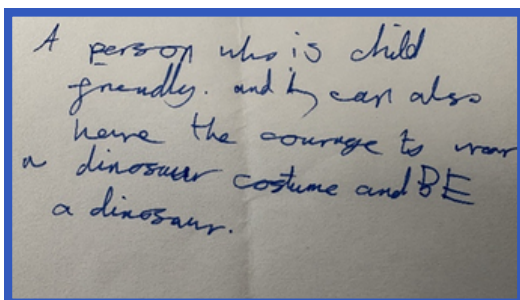 A person who is child
friendly. and can also
have the courage to wear
a dinosaur costume and BE
a dinosaur.